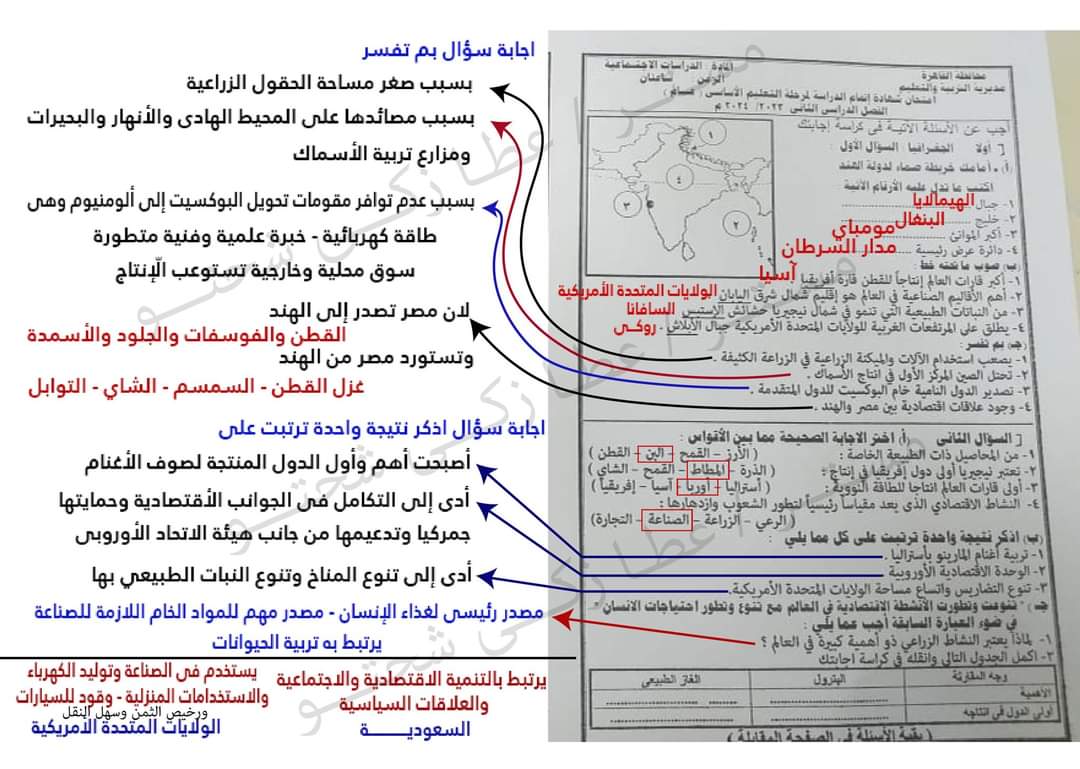 محافظة القاهرة
مديرية التربية والتعليم
المادة : الدراسات الاجتماعية
الزمن : ساعتان
امتحان شهادة إتمام الدراسة لمرحلة التعليم الأساسى ( عام )
الفصل الدراسى الثانى ٢٠٢٣ / ٢٠٢٤ م
أجب عن الأسئلة الآتية فى كراسة إجابتك
أولا : الجغرافيا : السؤال الأول :
(أ) ـ أمامك خريطة صماء لدولة الهند
اكتب ما تدل عليه الأرقام الآتية
١- جبال الهيمالايا
٢- خليج البنغال
٣- أكبر الموانئ مومباي
٤- دائرة عرض رئيسية مدار السرطان
١
٢
٣
٤
(ب) صوب ما تحته خط :
١- أكبر قارات العالم إنتاجاً للقطن قارة أفريقيا . آسيا
٢- أهم الأقاليم الصناعية فى العالم هو إقليم شمال شرق اليابان الولايات المتحدة الأمريكية
٣- من النباتات الطبيعية التي تنمو فى شمال نيجيريا حشائش الإستبس السافانا
٤- يطلق على المرتفعات الغربية للولايات المتحدة الأمريكية جبال الأبلاش . روكى
(جـ) بم تفسر :
١- يصعب استخدام الآلات والميكنة الزراعية في الزراعة الكثيفة .
٢- تحتل الصين المركز الأول في انتاج الأسماك .
٣- تصدير الدول النامية خام البوكسيت للدول المتقدمة .
٤- وجود علاقات اقتصادية بين مصر والهند .
السؤال الثانى (أ) اختر الاجابة الصحيحة مما بين الأقواس :
١- من المحاصيل ذات الطبيعة الخاصة : ( الأرز – القمح – البن – القطن )
٢- تعتبر نيجيريا أولى دول إفريقيا في إنتاج : ( الذرة – المطاط – القمح – الشاي )
٣- أولى قارات العالم انتاجا للطاقة النووية : ( أستراليا – أوربا – آسيا – إفريقيا )
٤- النشاط الاقتصادي الذى يعد مقياساً رئيسياً لتطور الشعوب وازدهارها :
( الرعي – الزراعة – الصناعة – التجارة )
(ب) اذكر نتيجة واحدة ترتبت على كل مما يلي :
١- تربية أغنام المارينو بأستراليا .
٢- الوحدة الاقتصادية الأوروبية
٣- تنوع التضاريس واتساع مساحة الولايات المتحدة الأمريكية.
جـ - " تنوعت وتطورت الأنشطة الاقتصادية في العالم مع تنوع وتطور احتياجات الانسان "
في ضوء العبارة السابقة أجب عما يلي :
١- لماذا يعتبر النشاط الزراعي ذو أهمية كبيرة في العالم ؟
٢- اكمل الجدول التالى وانقله في كراسة اجابتك
وجه المقارنة البترول الغاز الطبيعى
الأهمية
أولى الدول فى انتاجه
( بقية الأسئلة في الصفحة المقابلة )
اجابة سؤال بم تفسر
بسبب صغر مساحة الحقول الزراعية
بسبب مصائدها على المحيط الهادى والأنهار والبحيرات
ومزارع تربية الأسماك
بسبب عدم توافر مقومات تحويل البوكسيت إلى ألومنيوم وهى
طاقة كهربائية - خبرة علمية وفنية متطورة
سوق محلية وخارجية تستوعب الإنتاج
لان مصر تصدر إلى الهند
القطن والفوسفات والجلود والأسمدة
وتستورد مصر من الهند
غزل القطن - السمسم - الشاي - التوابل
اجابة سؤال اذكر نتيجة واحدة ترتبت على
أصبحت أهم وأول الدول المنتجة لصوف الأغنام
أدى إلى التكامل فى الجوانب الأقتصادية وحمايتها
جمركيا وتدعيمها من جانب هيئة الاتحاد الأوروبى
أدى إلى تنوع المناخ وتنوع النبات الطبيعي بها
مصدر رئيسى لغذاء الإنسان - مصدر مهم للمواد الخام اللازمة للصناعة
يرتبط به تربية الحيوانات
يرتبط بالتنمية الاقتصادية والاجتماعية
والعلاقات السياسية
السعوديـــــة
يستخدم فى الصناعة وتوليد الكهرباء
والاستخدامات المنزلية - وقود للسيارات
ورخيص الثمن وسهل النقل
الولايات المتحدة الامريكية
مستر / عطا زكى شحتو
مستر / عطا زكى شحتو